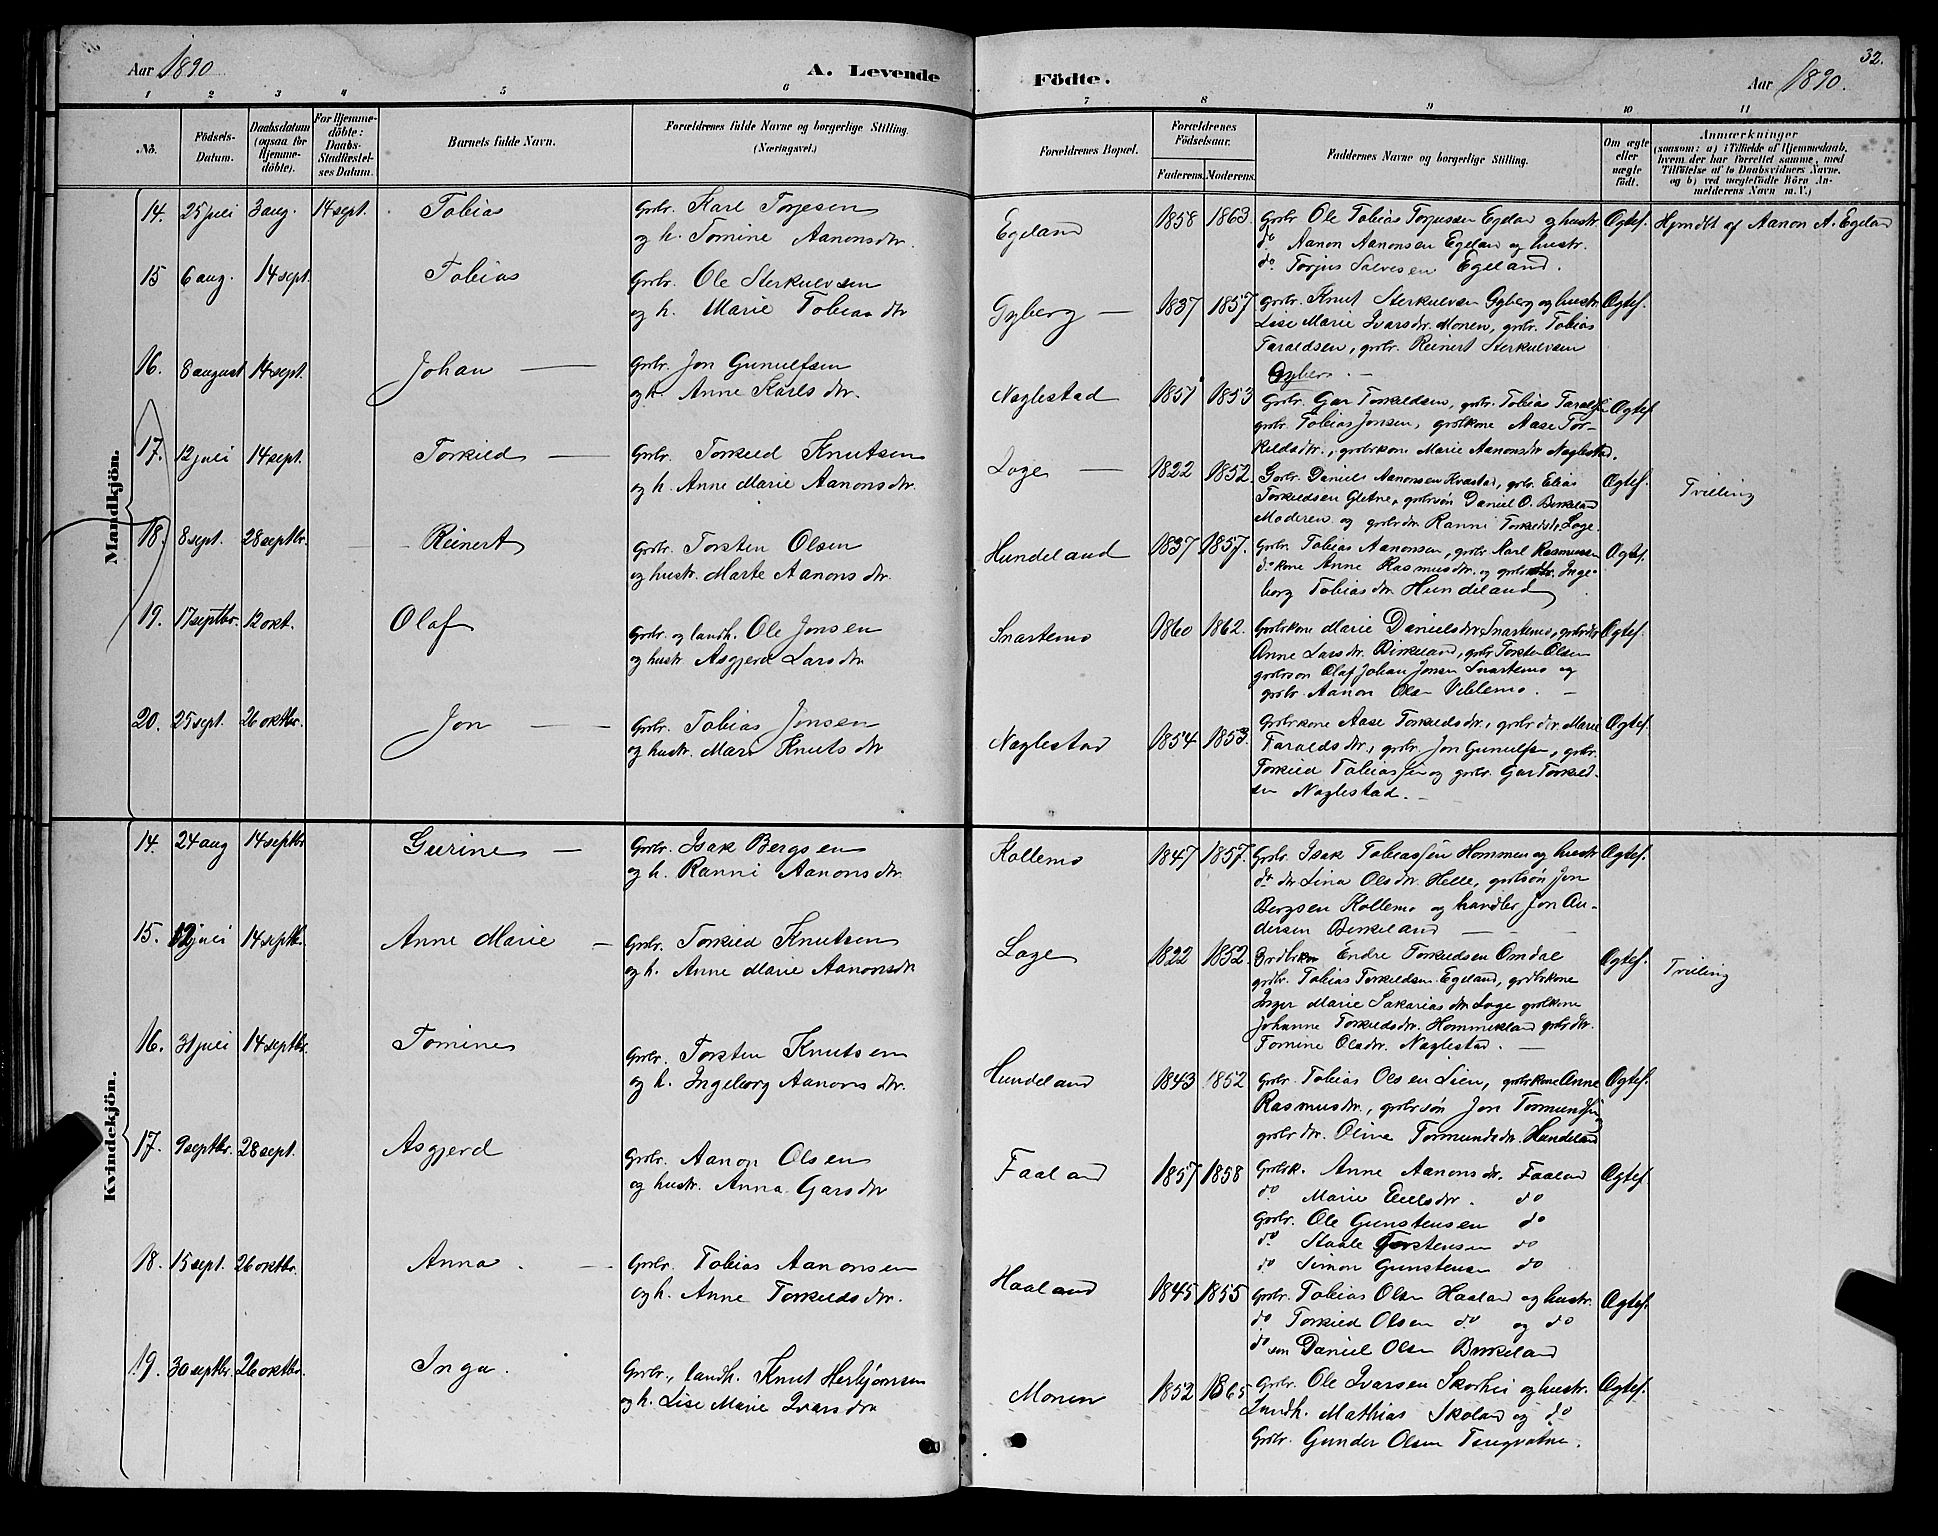 32.
Aar 1890 A. Levende Födte. Aar 1890.
1 2 3 4 5 6 7 8 9 10 11
No.
Födsels-
Datum.
Daabsdatum
(ogsaa for
Hjemme-
döbte).
For Hjemme-
döbte:
Daabs-
Stadfæstel-
ses Datum.
Barnets fulde Navn.
Forældrenes fulde Navne og borgerlige Stilling.
(Næringsvei.)
Forældrenes Bopæl.
Forældrenes
Födselsaar.
Faderens. Moderens.
Faddernes Navne og borgerlige Stilling.
Om ægte
eller
uægte
födt.
Anmærkninger
(saasom: a) i Tilfælde af Hjemmedaab,
hvem der har forrettet samme, med
Tilföielse af to Daabsvidners Navne,
og b) ved uægtefödte Börn An-
melderens Navn m. V.)
Mandkjön.
14. 25 juli 3 aug. 14 sept. Tobias
Grbr. Karl Torjesen
og h. Tomine Aanonsdtr.
Egeland 1858 1863.
Grbr Ole Tobias Torjussen Egeland og hustr.
do Aanon Aanonsen Egeland og hustr.
do. Torjus Salvesen Egeland.
Ægtef. Hjmdbt af Aanon A. Egeland
15 6 aug. 14 sept. Tobias
Grbr. Ole Sterkulvsen
og h. Marie Tobiasdtr
Gyberg — 1837 1857
grbr. Knut Sterkulvsen Gyberg og hustr
Lise Marie Ivarsdtr. Monen, grbr. Tobias
Taraldsen, grbr. Reinert Sterkulvsen
Gyberg. —
Ægtef.
16. 8 august 14 sept. Johan —
Grbr. Jon Gunulfsen
og h. Anne Karlsdtr.
Naglestad 1851 1853
Grbr. Gar Torkeldsen, grbr. Tobias Taralds.
grbr. Tobias Jonsen, grbrkone Aase Tor-
keldsdtr., grbrkone Marie Aanonsdtr Naglestad.
Ægtef
17. 12 juli 14 sept. Torkild —
Grbr. Torkild Knutsen
og h. Anne Marie Aanonsdtr.
Loge — 1822 1852.
Grbr. Daniel Aanonsen Kvastad, grbr. Elias
Torkildsen Gletne, grbrsøn Daniel O. Birkeland
Moderen og grbrdtr Ranni Torkildsdtr, Loge.
Ægtef. Tvilling
18. 8 sept. 28 septbr. Reinert
Grbr. Torsten Olsen
og hustr. Marte Aanonsdtr.
Hundeland 1837 1857.
Grbr. Tobias Aanonsen, grbr. Karl Rasmussen
do kone Anne Rasmusdtr. og grbrdtr. Inge-
borg Tobiasdtr Hundeland
Ægtef.
19. 17 septbr. 12 okt. Olaf
Grbr. og landh. Ole Jonsen
og hustr Asgjerd Larsdtr
Snartemo 1860 1862.
Grbrkone Marie Danielsdtr, Snartemo, grbrdtr
Anne Larsdtr. Birkeland, grbr Torsten Olsen
grbrsøn Olaf Johan Jonsen Snartemo og
grbr. Aanon Olsen Veblemo. —
Ægtef.
20. 25 sept. 26 oktbr. Jon —
Grbr. Tobias Jonsen
og hustr. Marie Knutsdtr
Naglestad 1854 1853.
Grbrkone Aase Torkildsdtr., grbrdtr. Marie
Taraldsdtr., grbr. Jon Gunulfsen, grbr.
Torkild Tobiassen og grbr. Gar Torkild-
sen Naglestad. —
Ægtef.
Kvindekjön.
14. 24 aug 14 septbr Gurine —
Grbr. Isak Bergsen
og h. Ranni Aanonsdtr.
Kollemo 1847 1857.
Grbr. Isak Tobiassen Hommen og hustr
do dtr Lina Olsdtr. Helle, grbrsøn Jon
Bergsen Kollemo og handler Jon An-
dersen Birkeland —
Ægtef.
15. 12 juli 14 septbr. Anne Marie —
Grbr. Torkild Knutsen
og h. Anne Marie Aanonsdtr
Loge 1822 1852.
Grdbrkon Endre Torkildsen Omdal
grbr. Tobias Torkildsen Egeland, grdbrkone
Inger Marie Sakariasdtr Loge grbrkone
Johanne Torkildsdtr. Hommeland grbrdtr.
Tomine Olsdtr. Naglestad. —
Ægtef. Tvilling
16. 31 juli 14 septbr. Tomine
Grbr. Torsten Knutsen
og h. Ingeborg Aanonsdtr.
Hundeland 1843 1852
Grbr. Tobias Olsen Lien, grbrkone Anne
Rasmusdtr., grbrsøn Jon Tormundsen
grbrdtr. Oline Tormundsdtr. Hundeland
Ægtef.
17. 9 septbr. 28 sept. Asgjerd
Grbr. Aanon Olsen
og hustr. Anna Garsdtr
Faaland 1857 1858
Grbrk. Anne Aanonsdtr. Faaland
do. Marie Eielsdtr. do
Grbr. Ole Gunstensen do
do. Staale Torstensen do
do Simon Gunstensen do
Ægtef.
18. 15 sept. 26 oktbr. Anna. —
Grbr. Tobias Aanonsen
og h. Anne Torkildsdtr.
Haaland 1845 1855
Grbr. Tobias Olsen Haaland og hustr.
do Torkild Olsen do og do
do søn Daniel Olsen Birkeland
Ægtef.
19. 30 septbr 26 oktbr. Inga.
Grbr., landh. Knut Herbjørnsen
og h. Lise Marie Ivarsdtr
Monen 1852 1865
Grbr. Ole Ivarsen Skorkei og hustr.
Landh. Mathias Skoland og do
Grbr. Gunder Olsen Tengvatne.
Ægtef.